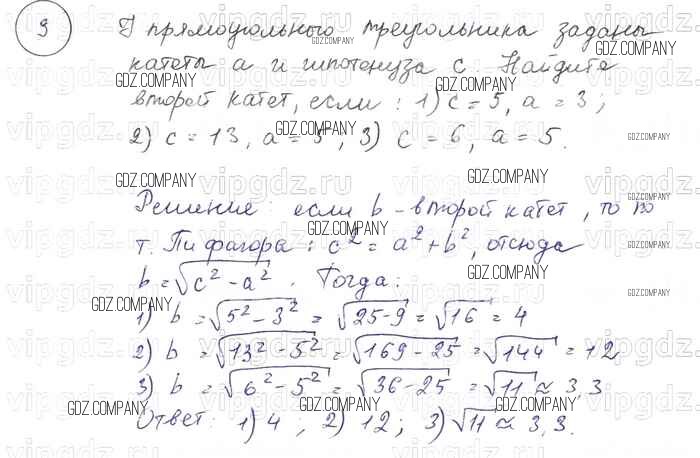 9 У прямоугольного треугольника заданы
катеты a и гипотенуза c. Найдите
второй катет, если: 1) c = 5, a = 3;
2) c = 13, a = 5; 3) c = 6, a = 5.
Решение: если b - второй катет, то по
т. Пифагора: c² = a² + b², отсюда
b = √(c² - a²). Тогда:
1) b = √(5² - 3²) = √(25 - 9) = √16 = 4
2) b = √(13² - 5²) = √(169 - 25) = √144 = 12
3) b = √(6² - 5²) = √(36 - 25) = √11 ≈ 3,3
Ответ: 1) 4; 2) 12; 3) √11 ≈ 3,3.
GDZ.COMPANY
vipgdz.ru